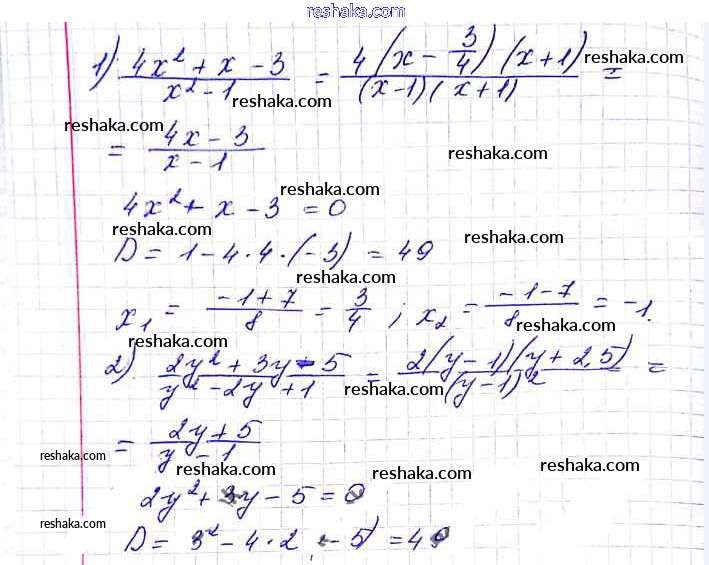 reshaka.com
1) (4x² + x - 3)/(x² - 1) = (4(x - 3/4)(x + 1))/((x-1)(x+1)) =
reshaka.com
reshaka.com
reshaka.com
= (4x - 3)/(x - 1)
reshaka.com
reshaka.com
4x² + x - 3 = 0
reshaka.com
reshaka.com
D = 1 - 4·4·(-3) = 49
reshaka.com
x₁ = (-1+7)/8 = 3/4 ; x₂ = (-1-7)/8 = -1.
reshaka.com
reshaka.com
2) (2y² + 3y - 5)/(y² - 2y + 1) = (2(y - 1)(y + 2,5))/(y-1)² =
reshaka.com
= (2y + 5)/(y - 1)
reshaka.com
reshaka.com
reshaka.com
2y² + 3y - 5 = 0
reshaka.com
reshaka.com
D = 3² - 4·2 - 5) = 49